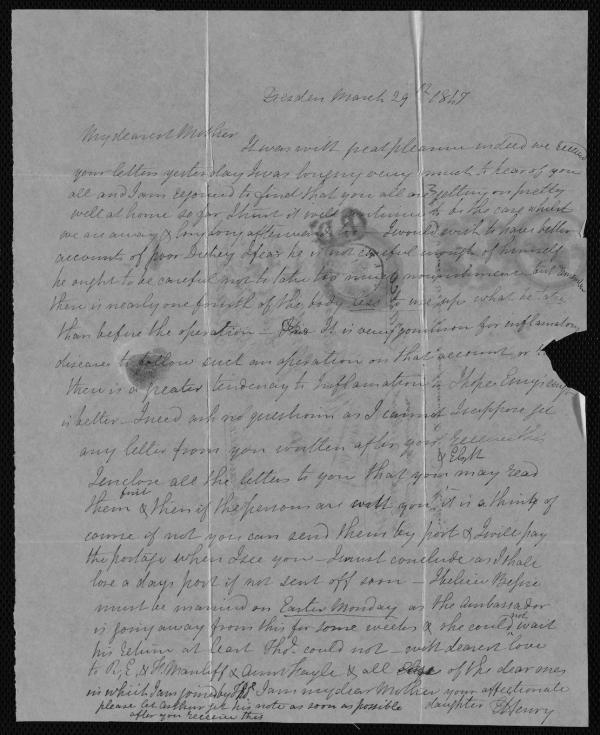 Dresden March 29th 1847
My dearest Mother
It was with great pleasure indeed we received
your letters yesterday I was longing very much to hear of you
all and I am rejoiced to find that you all are getting on pretty
well at home so far, I trust it will continue to be the case whilst
we are away & long long after I would wish to have better
accounts of poor I fear he is not careful enough of himself
he ought to be careful not to take too much nourishment but
there is nearly one fourth of the body less to use up what he
than before the operation It is very common for inflammatory
diseases to follow such an operation on that account, or
there is a greater tendency to inflammation I hope
is better I need ask no questions as I cannot I suppose get
any letter from you written after you receive this
& Elizth
I enclose all the letters to you that you may read
them first & then if the persons are with you, it is a thing of
course if not you can send them by post & I will pay
the postage when I see you I must conclude as I shall
lose a days post if not sent off soon I believe Bessie
must be married on Easter Monday as the Ambassador
is going away from this for some weeks & she could not wait
his return at least Thos. could not with dearest love
to R, E, & H & Aunt & all of the dear ones
in which I am joined by I am my dear Mother your affectionate
daughter E Henry
please let Arthur get his note as soon as possible
after you receive this